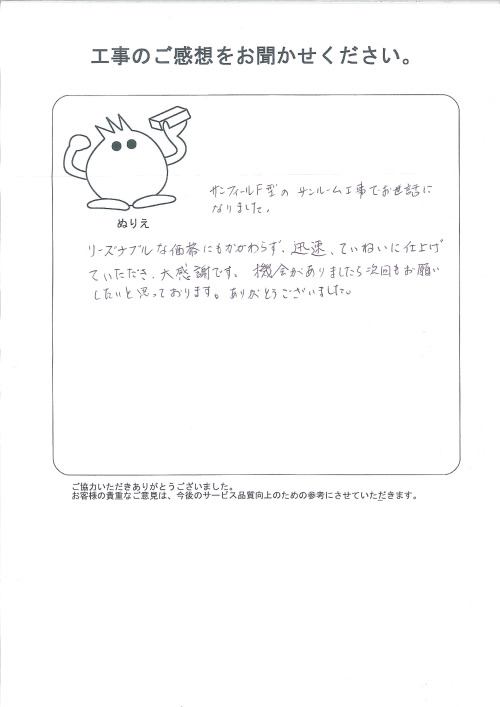 工事のご感想をお聞かせください。
サンフィールF型の サンルーム工事でお世話に
なりました。
ぬりえ
リーズナブルな価格にもかかわらず、迅速、ていねいに仕上げ
ていただき、大感謝です。機会がありましたら次回もお願い
したいと思っております。ありがとうございました。
ご協力いただきありがとうございました。
お客様の貴重なご意見は、今後のサービス品質向上のための参考にさせていただきます。